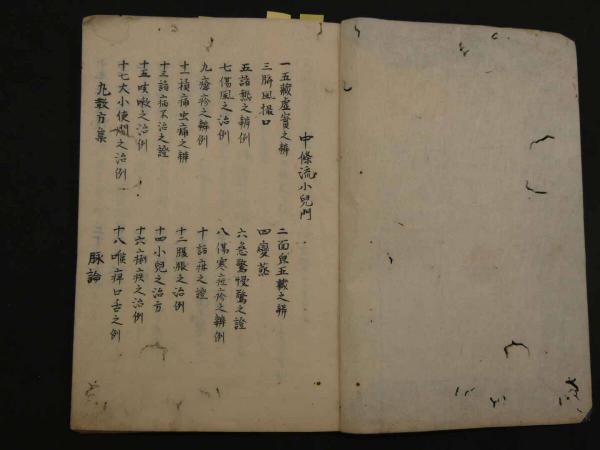 中條流小兒門
一五臟虛實之辨
二面皃五臟之辨
三臍風撮口
四變蒸
五諸熱之辨例
六急驚慢驚之證
七傷風之治例
八傷寒痘疹之辨例
九瘡疹之辨例
十諸疳之證
十一積痛虫痛之辨
十二腹脹之治例
十三諸病不治之證
十四小兒之治方
十五咳嗽之治例
十六痢疾之治例
十七大小便閉之治例
十八喉痺口舌之例
九穀方集
脉論